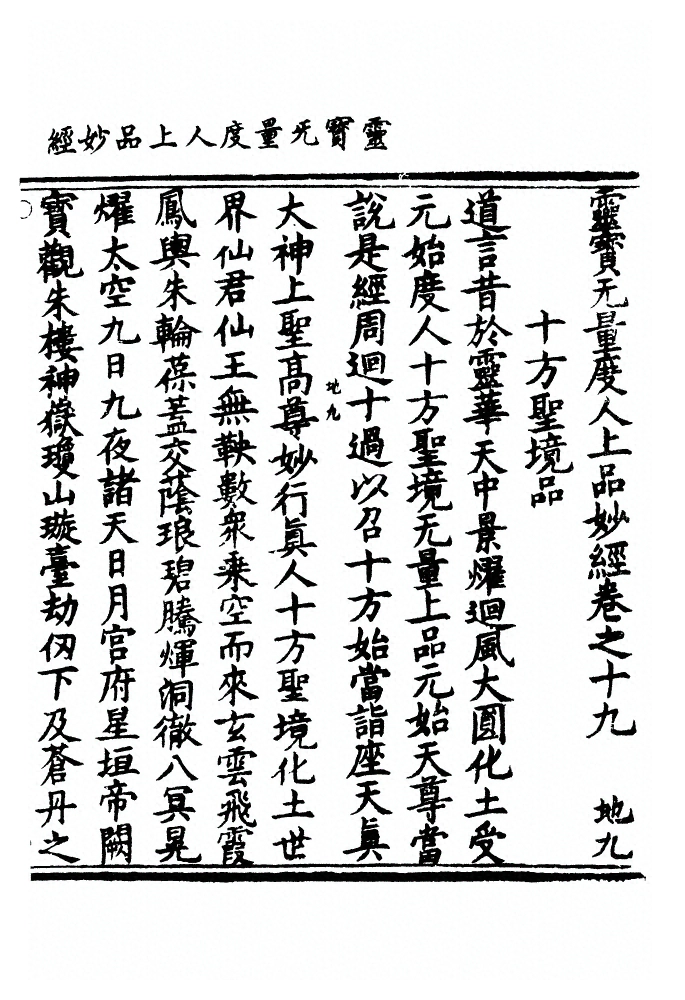 靈寳无量度人上品妙經
靈寳无量度人上品妙經卷之十九 地九
十方聖境品
道言昔於靈華天中景燿迴風大圓化土受
元始度人十方聖境无量上品元始天尊當
說是經周迴十過以召十方始當詣座天眞
地九
大神上聖高尊妙行眞人十方聖境化土世
界仙君仙王無鞅數衆乗空而來玄雲飛霞
鳳輿朱輪葆蓋交蔭琅碧騰煇洞徹八冥晃
燿太空九日九夜諸天日月宫府星垣帝闕
寳觀朱樓神嶽瓊山璇臺劫仭下及蒼丹之